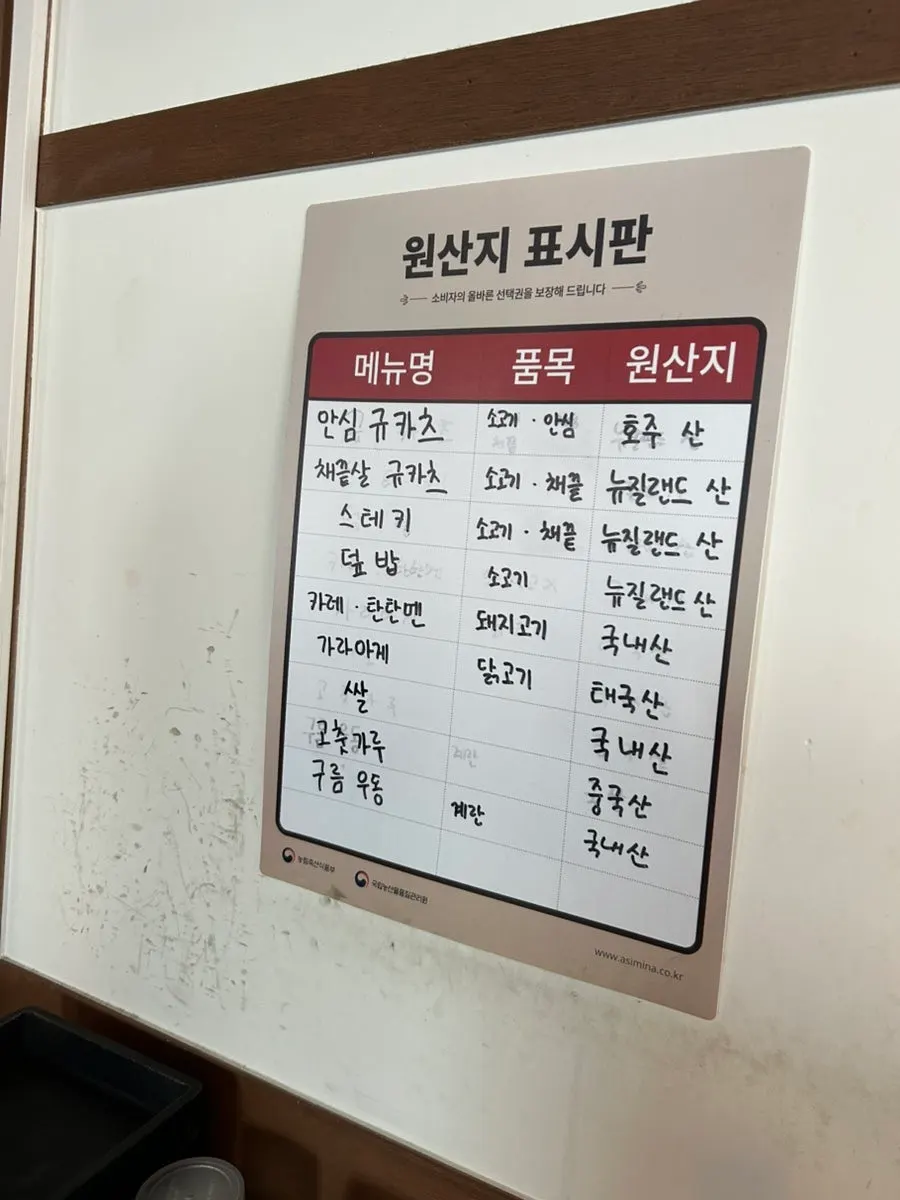 원산지 표시판
소비자의 올바른 선택권을 보장해 드립니다
메뉴명 품목 원산지
안심 규카츠 소고기 · 안심 호주 산
채끝살 규카츠 소고기 · 채끝 뉴질랜드 산
스테키 소고기 · 채끝 뉴질랜드 산
덮밥 소고기 뉴질랜드 산
카레 · 탄탄멘 돼지고기 국내산
가라아게 닭고기 태국산
쌀 국내산
고춧가루 중국산
구름 우동 계란 국내산
농림축산식품부 국립농산물품질관리원
www.asimina.co.kr